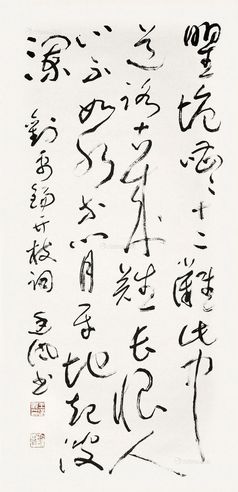 瞿塘嘈〻十二灘此中
道路古來難長恨人
心不如水等閒平地起波
瀾
劉禹錫竹枝詞 廷風書